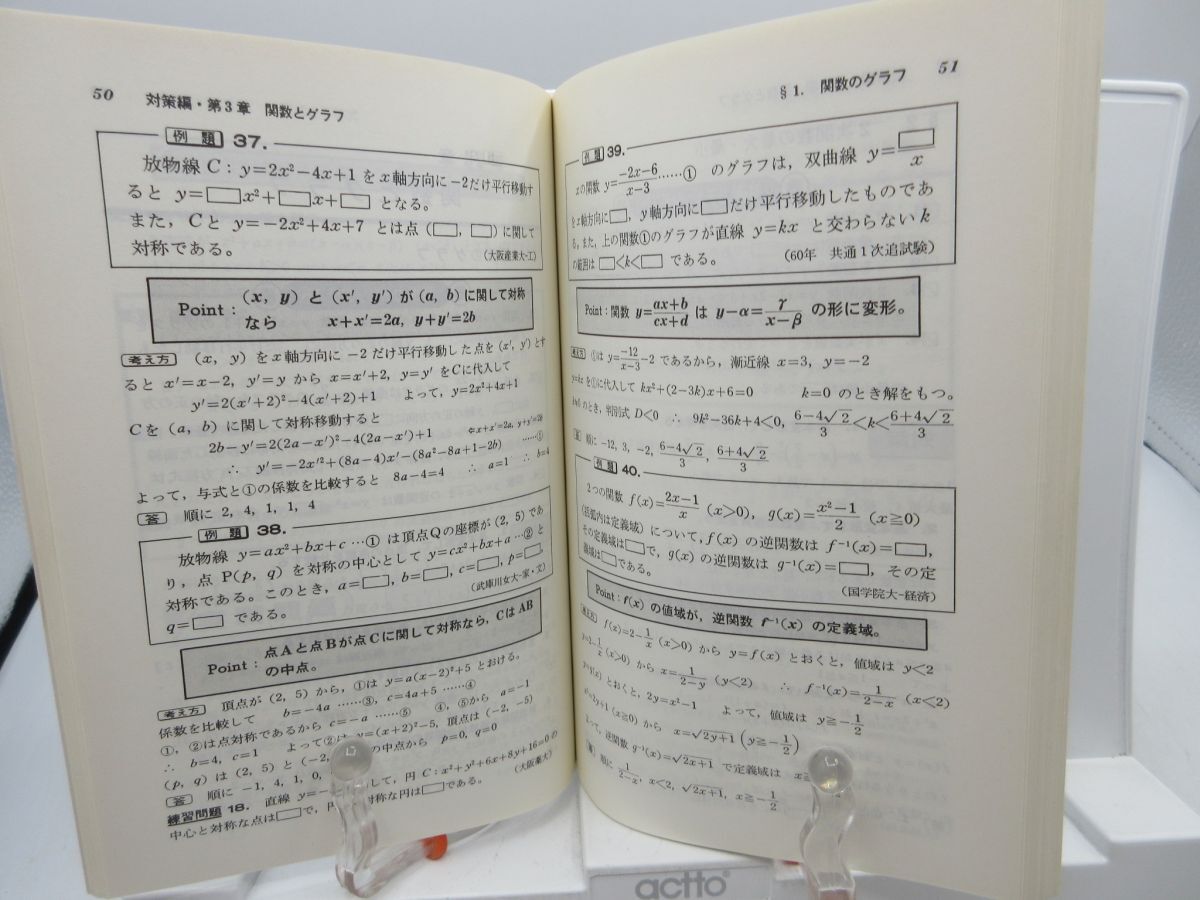 50 対策編・第3章 関数とグラフ
例題 37.
放物線 C：y=2x²−4x+1 を x 軸方向に −2 だけ平行移動す
ると y=□x²+□x+□ となる。
また，C と y=−2x²+4x+7 とは点 (□, □) に関して
対称である。 (大阪産業大-工)
Point： (x, y) と (x′, y′) が (a, b) に関して対称
なら x+x′=2a, y+y′=2b
考え方 (x, y) を x 軸方向に −2 だけ平行移動した点を (x′, y′) とす
ると x′=x−2, y′=y から x=x′+2, y=y′ を C に代入して
y′=2(x′+2)²−4(x′+2)+1 よって，y=2x²+4x+1
C を (a, b) に関して対称移動すると
2b−y′=2(2a−x′)²−4(2a−x′)+1 ⇦x+x′=2a, y+y′=2b
∴ y′=−2x′²+(8a−4)x′−(8a²−8a+1−2b) ……①
よって，与式と①の係数を比較すると 8a−4=4 ∴ a=1 ∴ b=4
答 順に 2, 4, 1, 1, 4
例題 38.
放物線 y=ax²+bx+c …① は頂点Qの座標が (2, 5) であ
り，点 P(p, q) を対称の中心として y=cx²+bx+a …② と
対称である。このとき，a=□, b=□, c=□, p=□,
q=□ である。 (武庫川女大-家・文)
Point： 点Aと点Bが点Cに関して対称なら，CはAB
の中点。
考え方 頂点が (2, 5) から，①は y=a(x−2)²+5 とおける。
係数を比較して b=−4a ……③, c=4a+5 ……④
①, ②は点対称であるから c=−a ……⑤ ④, ⑤から a=−1
∴ b=4, c=1 よって②は y=(x+2)²−5, 頂点は (−2, −5)
(p, q) は (2, 5) と (−2, の中点から p=0, q=0
答 順に −1, 4, 1, 0,
練習問題 18. 直線 y=− して，円 C：x²+y²+6x+8y+16=0 の
中心と対称な点は□で，円 対称な円は□である。 (大阪薬大)
§1. 関数のグラフ 51
例題 39.
x の関数 y=(−2x−6)/(x−3) ……① のグラフは，双曲線 y=□/x
を x 軸方向に□, y 軸方向に□だけ平行移動したものであ
る。また，上の関数①のグラフが直線 y=kx と交わらない k
の範囲は □<k<□ である。 (60年 共通1次追試験)
Point：関数 y=(ax+b)/(cx+d) は y−α=γ/(x−β) の形に変形。
考え方 ①は y=−12/(x−3)−2 であるから，漸近線 x=3, y=−2
y=kx を①に代入して kx²+(2−3k)x+6=0 k=0 のとき解をもつ。
k≠0 のとき，判別式 D<0 ∴ 9k²−36k+4<0, (6−4√2)/3<k<(6+4√2)/3
答 順に −12, 3, −2, (6−4√2)/3, (6+4√2)/3
例題 40.
2つの関数 f(x)=(2x−1)/x (x>0), g(x)=(x²−1)/2 (x≧0)
(括弧内は定義域) について，f(x) の逆関数は f⁻¹(x)=□,
その定義域は□で，g(x) の逆関数は g⁻¹(x)=□, その定
義域は□である。 (国学院大-経済)
Point：f(x) の値域が，逆関数 f⁻¹(x) の定義域。
考え方 f(x)=2−1/x (x>0) から y=f(x) とおくと，値域は y<2
y=2−1/x (x>0) から x=1/(2−y) (y<2) ∴ f⁻¹(x)=1/(2−x) (x<2)
y=g(x) とおくと，2y=x²−1 よって，値域は y≧−1/2
x²=2y+1 (x≧0) から x=√(2y+1) (y≧−1/2)
よって，逆関数 g⁻¹(x)=√(2x+1) で定義域は x≧
答 順に 1/(2−x), x<2, √(2x+1), x≧−1/2
actto